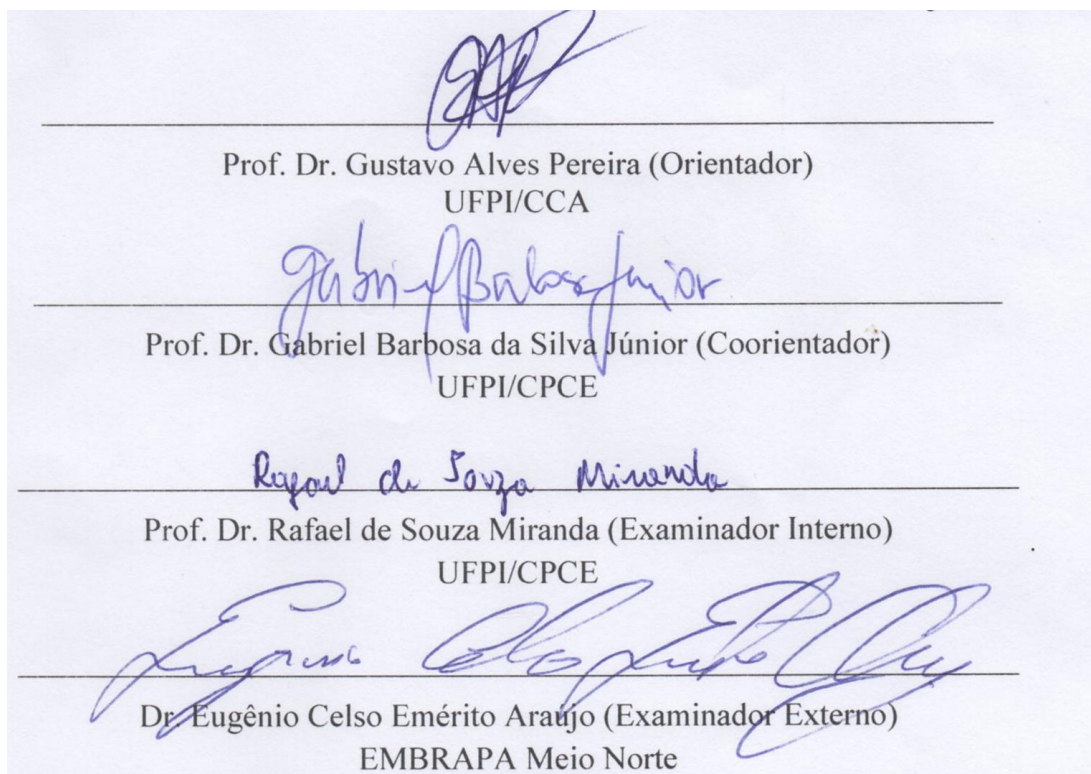 Prof. Dr. Gustavo Alves Pereira (Orientador)
UFPI/CCA
Gabriel Barbosa Junior
Prof. Dr. Gabriel Barbosa da Silva Júnior (Coorientador)
UFPI/CPCE
Rafael de Souza Miranda
Prof. Dr. Rafael de Souza Miranda (Examinador Interno)
UFPI/CPCE
Eugênio Celso
Dr. Eugênio Celso Emérito Araújo (Examinador Externo)
EMBRAPA Meio Norte